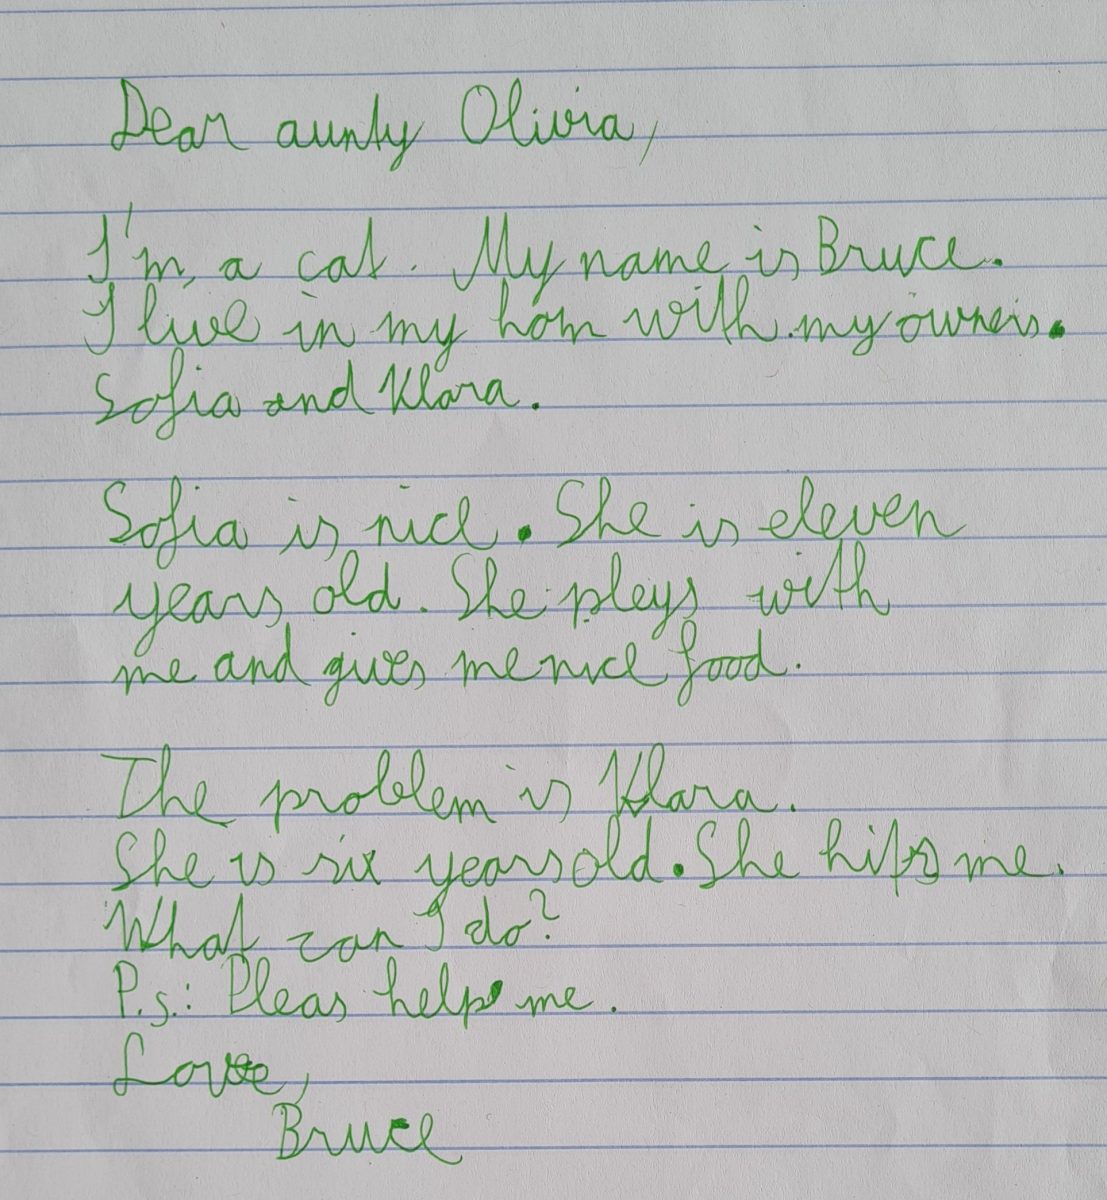 Dear aunty Olivia,
I'm a cat. My name is Bruce.
I live in my hom with my owners.
Sofia and Klara.
Sofia is nice. She is eleven
years old. She pleys with
me and gives me nice food.
The problem is Klara.
She is six years old. She hits me.
What can I do?
P.s.: Pleas help me.
Love,
Bruce